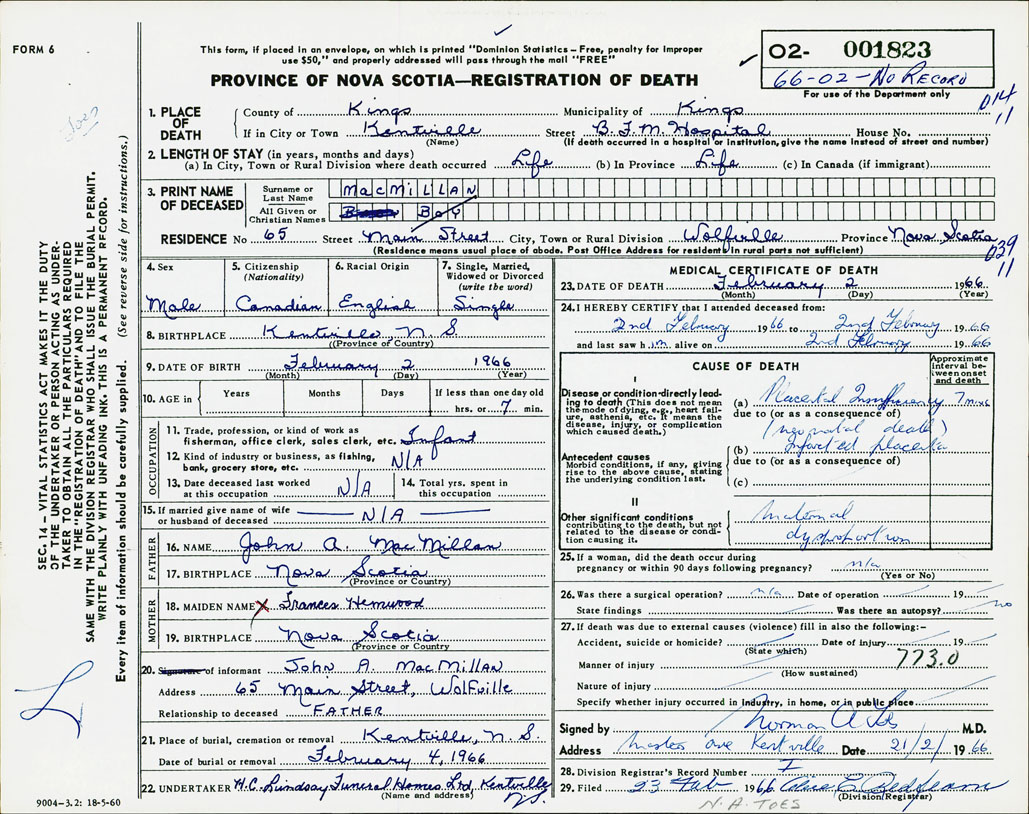 FORM 6
This form, if placed in an envelope, on which is printed "Dominion Statistics – Free, penalty for improper
use $50," and properly addressed will pass through the mail "FREE"
PROVINCE OF NOVA SCOTIA—REGISTRATION OF DEATH
O2- 001823
66-02-No Record
For use of the Department only
014
11
1. PLACE OF DEATH
County of Kings Municipality of Kings
If in City or Town Kentville Street B.F.M. Hospital House No.
(Name) (If death occurred in a hospital or institution, give the name instead of street and number)
2. LENGTH OF STAY (in years, months and days)
(a) In City, Town or Rural Division where death occurred Life (b) In Province Life (c) In Canada (if immigrant)
3. PRINT NAME OF DECEASED
Surname or Last Name MacMILLAN
All Given or Christian Names Boy
RESIDENCE No 65 Street Main Street City, Town or Rural Division Wolfville Province Nova Scotia
(Residence means place of abode. Post Office Address for residents in rural parts not sufficient)
039
11
4. Sex Male
5. Citizenship (Nationality) Canadian
6. Racial Origin English
7. Single, Married, Widowed or Divorced (write the word) Single
8. BIRTHPLACE Kentville, N. S.
(Province or Country)
9. DATE OF BIRTH February 2 1966
(Month) (Day) (Year)
10. AGE in Years Months Days If less than one day old
hrs. or 7 min.
OCCUPATION
11. Trade, profession, or kind of work as
fisherman, office clerk, sales clerk, etc. Infant
12. Kind of industry or business, as fishing,
bank, grocery store, etc. N/A
13. Date deceased last worked
at this occupation N/A
14. Total yrs. spent in
this occupation
15. If married give name of wife
or husband of deceased N/A
FATHER
16. NAME John A. MacMillan
17. BIRTHPLACE Nova Scotia
(Province or Country)
MOTHER
18. MAIDEN NAME X Frances Hemwood
19. BIRTHPLACE Nova Scotia
(Province or Country)
20. Signature of informant John A. MacMillan
Address 65 Main Street, Wolfville
Relationship to deceased FATHER
21. Place of burial, cremation or removal Kentville, N. S.
Date of burial or removal February 4, 1966
22. UNDERTAKER W.C. Lindsay Funeral Homes Ltd, Kentville
N.S.
(Name and address)
MEDICAL CERTIFICATE OF DEATH
23. DATE OF DEATH February 2 1966
(Month) (Day) (Year)
24. I HEREBY CERTIFY that I attended deceased from:
2nd February 1966 to 2nd February 1966
and last saw him alive on 2nd February 1966
CAUSE OF DEATH
Approximate interval between onset and death
I
Disease or condition directly leading to death (This does not mean the mode of dying, e.g., heart failure, asthenia, etc. It means the disease, injury, or complication which caused death.)
(a) Placental Insufficiency 7 mins
due to (or as a consequence of)
(neonatal death)
(b) Infarcted placenta
Antecedent causes
Morbid conditions, if any, giving rise to the above cause, stating the underlying condition last.
due to (or as a consequence of)
(c)
II
Other significant conditions
contributing to the death, but not related to the disease or condition causing it.
maternal
dysproportion
25. If a woman, did the death occur during
pregnancy or within 90 days following pregnancy? n/a
(Yes or No)
26. Was there a surgical operation? n/a Date of operation 19
State findings Was there an autopsy? no
27. If death was due to external causes (violence) fill in also the following:-
Accident, suicide or homicide? Date of injury 19
(State which)
773.0
Manner of injury
(How sustained)
Nature of injury
Specify whether injury occurred in industry, in home, or in public place
Signed by Norman A M.D.
Address Ave Kentville Date 21/2/ 1966
28. Division Registrar's Record Number
29. Filed 23 Feb 1966
(Division Registrar)
N.A. TOES
9004-3.2: 18-5-60
SEC. 14 – VITAL STATISTICS ACT MAKES IT THE DUTY
OF THE UNDERTAKER OR PERSON ACTING AS UNDER-
TAKER TO OBTAIN ALL THE PARTICULARS REQUIRED
IN THE "REGISTRATION OF DEATH" AND TO FILE THE
SAME WITH THE DIVISION REGISTRAR WHO SHALL ISSUE THE BURIAL PERMIT.
WRITE PLAINLY WITH UNFADING INK. THIS IS A PERMANENT RECORD.
Every item of information should be carefully supplied. (See reverse side for instructions.)